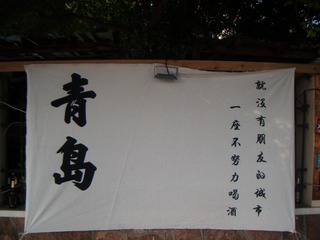 青島
一座不努力喝酒
就没有朋友的城市